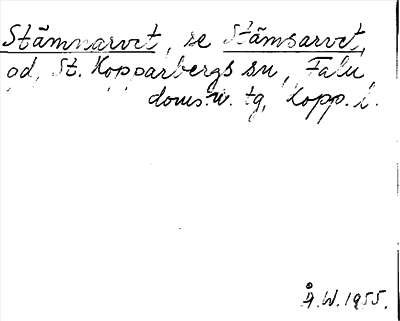 Stämnarvet, se Stämsarvet,
od, St. Kopparbergs sn, Falu
doms.n. tg, Kopp. l.
Å.W. 1955.